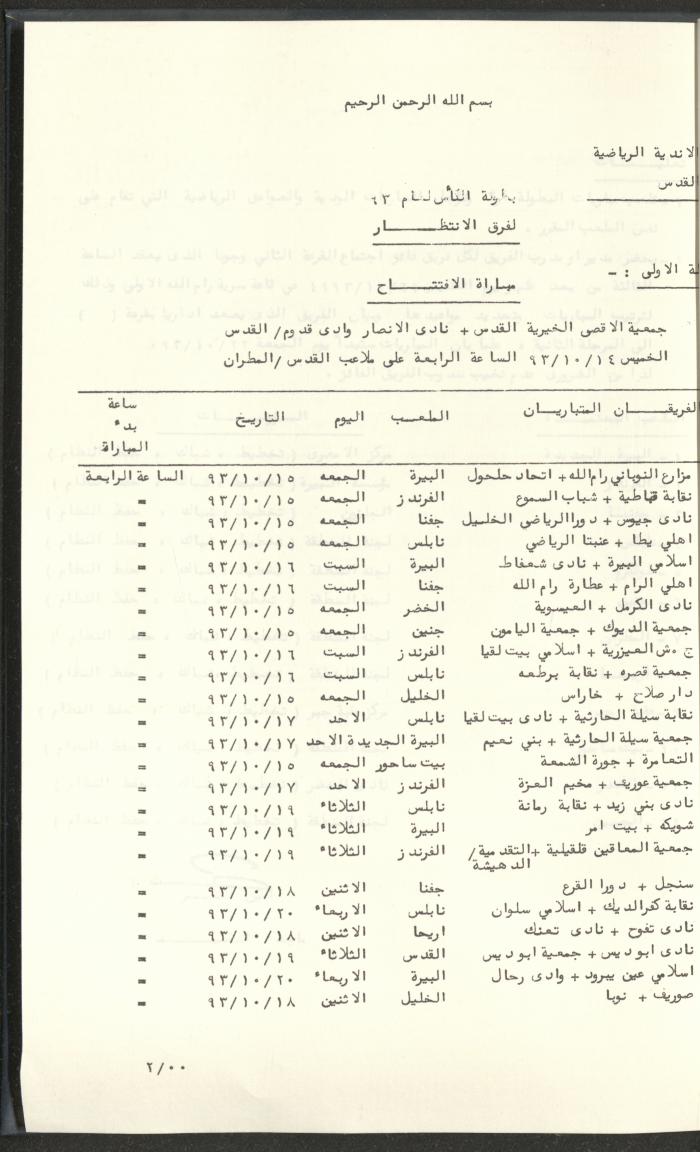 بسم الله الرحمن الرحيم
الاندية الرياضية
القدس
بطولة الكأس لعام ٦٣
لفرق الانتظـــــــار
لة الاولى : -
مباراة الافتتـــــــاح
جمعية الاقصى الخيرية القدس + نادى الانصار وادى قدوم/ القدس
الخميس ٩٣/١٠/١٤ الساعة الرابعة على ملاعب القدس /المطران
الفريقـــــان المتباريـــان الملعـــب اليوم التاريخ ساعة بدء المباراة
مزارع النوباني رام الله+ اتحاد حلحول البيرة الجمعه ٩٣/١٠/١٥ الساعة الرابعة
نقابة قباطية + شباب السموع الفرندز الجمعه ٩٣/١٠/١٥ =
نادى جيوس + دورا الرياضي الخليل جفنا الجمعه ٩٣/١٠/١٥ =
اهلي يطا + عنبتا الرياضي نابلس الجمعه ٩٣/١٠/١٥ =
اسلامي البيرة + نادى شعفاط البيرة السبت ٩٣/١٠/١٦ =
اهلي الرام + عطارة رام الله جفنا السبت ٩٣/١٠/١٦ =
نادى الكرمل + العيسوية الخضر الجمعه ٩٣/١٠/١٥ =
جمعية الديوك + جمعية اليامون جنين الجمعه ٩٣/١٠/١٥ =
ج ٠ش العيزرية + اسلامي بيت لقيا الفرندز السبت ٩٣/١٠/١٦ =
جمعية قصره + نقابة برطعه نابلس السبت ٩٣/١٠/١٦ =
دار صلاح + خاراس الخليل الجمعه ٩٣/١٠/١٥ =
نقابة سيلة الحارثية + نادى بيت لقيا نابلس الاحد ٩٣/١٠/١٧ =
جمعية سيلة الحارثية + بني نعيم البيرة الجديدة الاحد ٩٣/١٠/١٧ =
التعامرة + جورة الشمعة بيت ساحور الجمعه ٩٣/١٠/١٥ =
جمعية عوريف + مخيم العزة الفرندز الاحد ٩٣/١٠/١٧ =
نادى بني زيد + نقابة رمانة نابلس الثلاثاء ٩٣/١٠/١٩ =
شويكه + بيت امر البيرة الثلاثاء ٩٣/١٠/١٩ =
جمعية المعاقين قلقيلية +التقدمية/ الدهيشة الفرندز الثلاثاء ٩٣/١٠/١٩ =
سنجل + دورا القرع جفنا الاثنين ٩٣/١٠/١٨ =
نقابة كفرالديك + اسلامي سلوان نابلس الاربعاء ٩٣/١٠/٢٠ =
نادى تفوح + نادى تعنك اريحا الاثنين ٩٣/١٠/١٨ =
نادى ابو ديس + جمعية ابو ديس القدس الثلاثاء ٩٣/١٠/١٩ =
اسلامي عين يبرود + وادى رحال البيرة الاربعاء ٩٣/١٠/٢٠ =
صوريف + نوبا الخليل الاثنين ٩٣/١٠/١٨ =
٢/٠٠